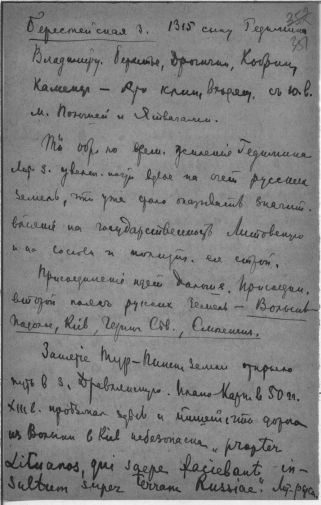 352
351
Берестейская з. 1315 сину Гедимина
Владимиру. Берестье, Дрогичин, Кобрин,
Каменец – до
м. Полотней и Ятвягами.
Т. обр. ко врем. усиления Гедимина
Лит. з. увелич. почти вдвое на счет русских
земель, что уже стало оказывать значит.
влияние на государственность Литовскую
и на состав и политич. ея строй.
Присоединение идет дальше. Присоедин.
второй пояс русских земель – Волынь
Подолье, Kiїв, Черниг. Сев., Смоленск.
Занятie Тур-Пинск земли открыло
путь в з. Древлянскую. Плано-Карп. в 50 гг.
XIII в. проезжал здесь и пишет, что дорога
из Волыни в Kiїв небезопасна „propter
Lituanos, qui saepe faciebant in-
sultum super terram Russiae". Лит-русск